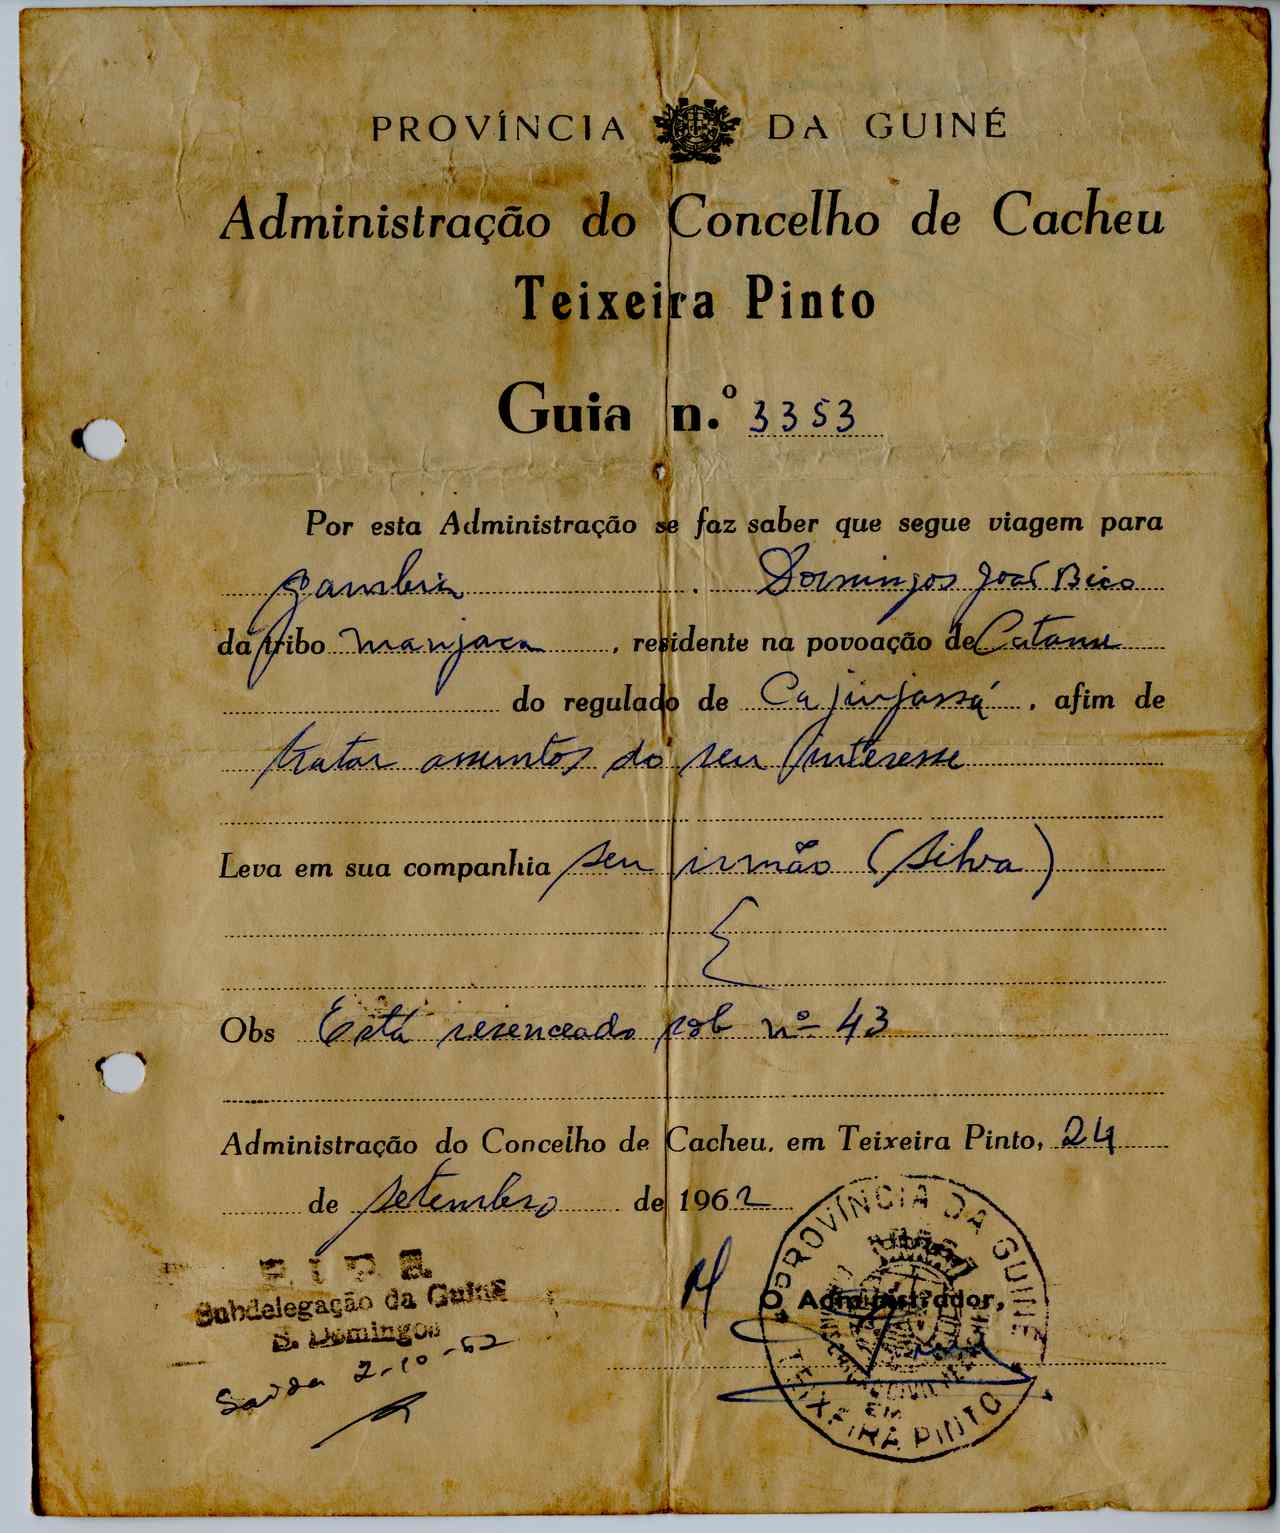 PROVÍNCIA DA GUINÉ
Administração do Concelho de Cacheu
Teixeira Pinto
Guia n.º 3353
Por esta Administração se faz saber que segue viagem para
Gambia . Domingos João Bico
da tribo manjaca , residente na povoação de Catama
do regulado de Cajinjassá , afim de
tratar assuntos do seu interesse
Leva em sua companhia seu irmão (Silva)
Obs Está resenceado sob nº 43
Administração do Concelho de Cacheu, em Teixeira Pinto, 24
de setembro de 1962
P. I. D. E.
Subdelegação da Guiné
S. Domingos
Saida 2-10-62
O Administrador,
PROVÍNCIA DA GUINÉ
EM
TEIXEIRA PINTO